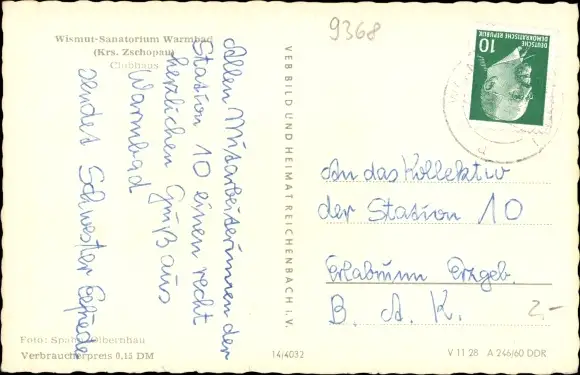 Wismut-Sanatorium Warmbad
(Krs. Zschopau)
Clubhaus
9368
Allen Mitarbeiterinnen der
Station 10 einen recht
herzlichen Gruß aus
Warmbad
sendet Schwester Elfriede
VEB BILD UND HEIMAT REICHENBACH i. V.
DEUTSCHE
DEMOKRATISCHE REPUBLIK
10
An das Kollektiv
der Station 10
Erlabrunn Erzgeb.
B. A. K.
2.-
Foto: Spahn, Olbernhau
Verbraucherpreis 0,15 DM
14/4032
V 11 28 A 246/60 DDR